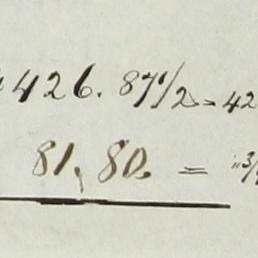 426. 87 1/2 = 42
81, 80. = "3/